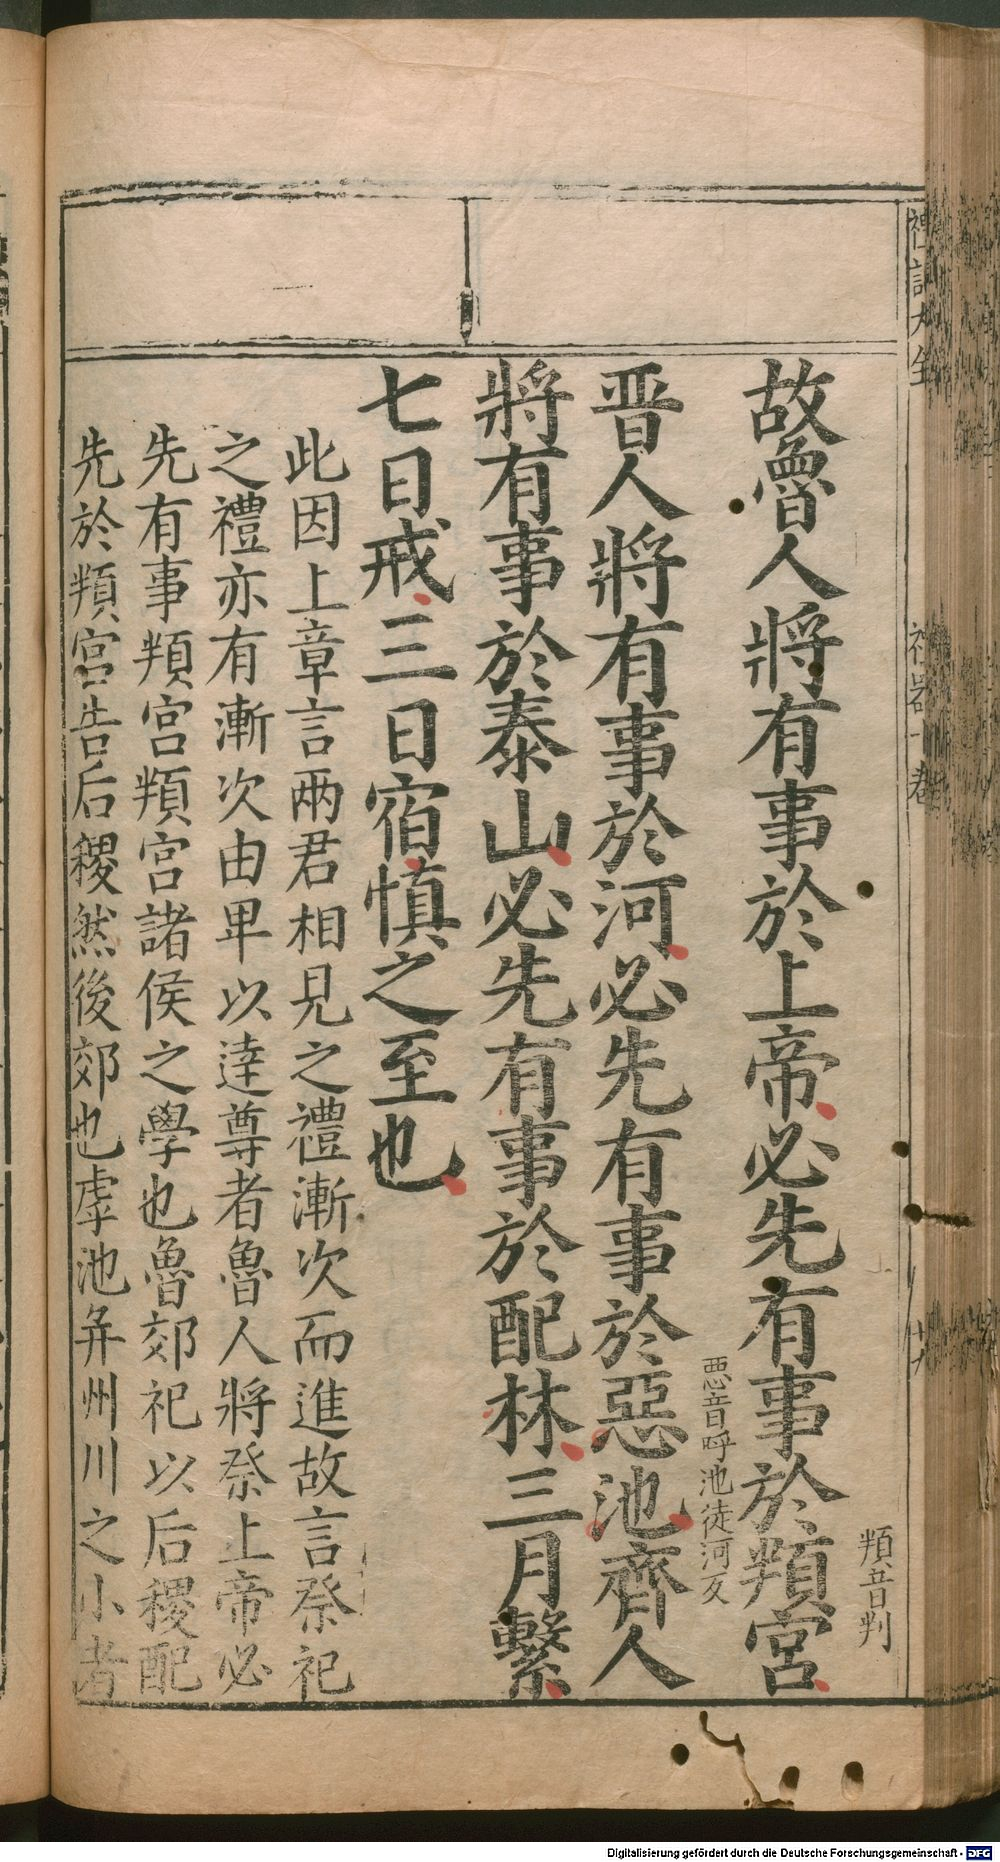 頖音判
故魯人將有事於上帝必先有事於頖宮
惡音呼池徒河反
晋人將有事於河必先有事於惡池齊人
將有事於泰山必先有事於配林三月繫
七日戒三日宿慎之至也
此因上章言兩君相見之禮漸次而進故言祭祀
之禮亦有漸次由卑以達尊者魯人將祭上帝必
先有事頖宮頖宮諸侯之學也魯郊祀以后稷配
先於頖宮告后稷然後郊也虖池并州川之小者
Digitalisierung gefördert durch die Deutsche Forschungsgemeinschaft - DFG